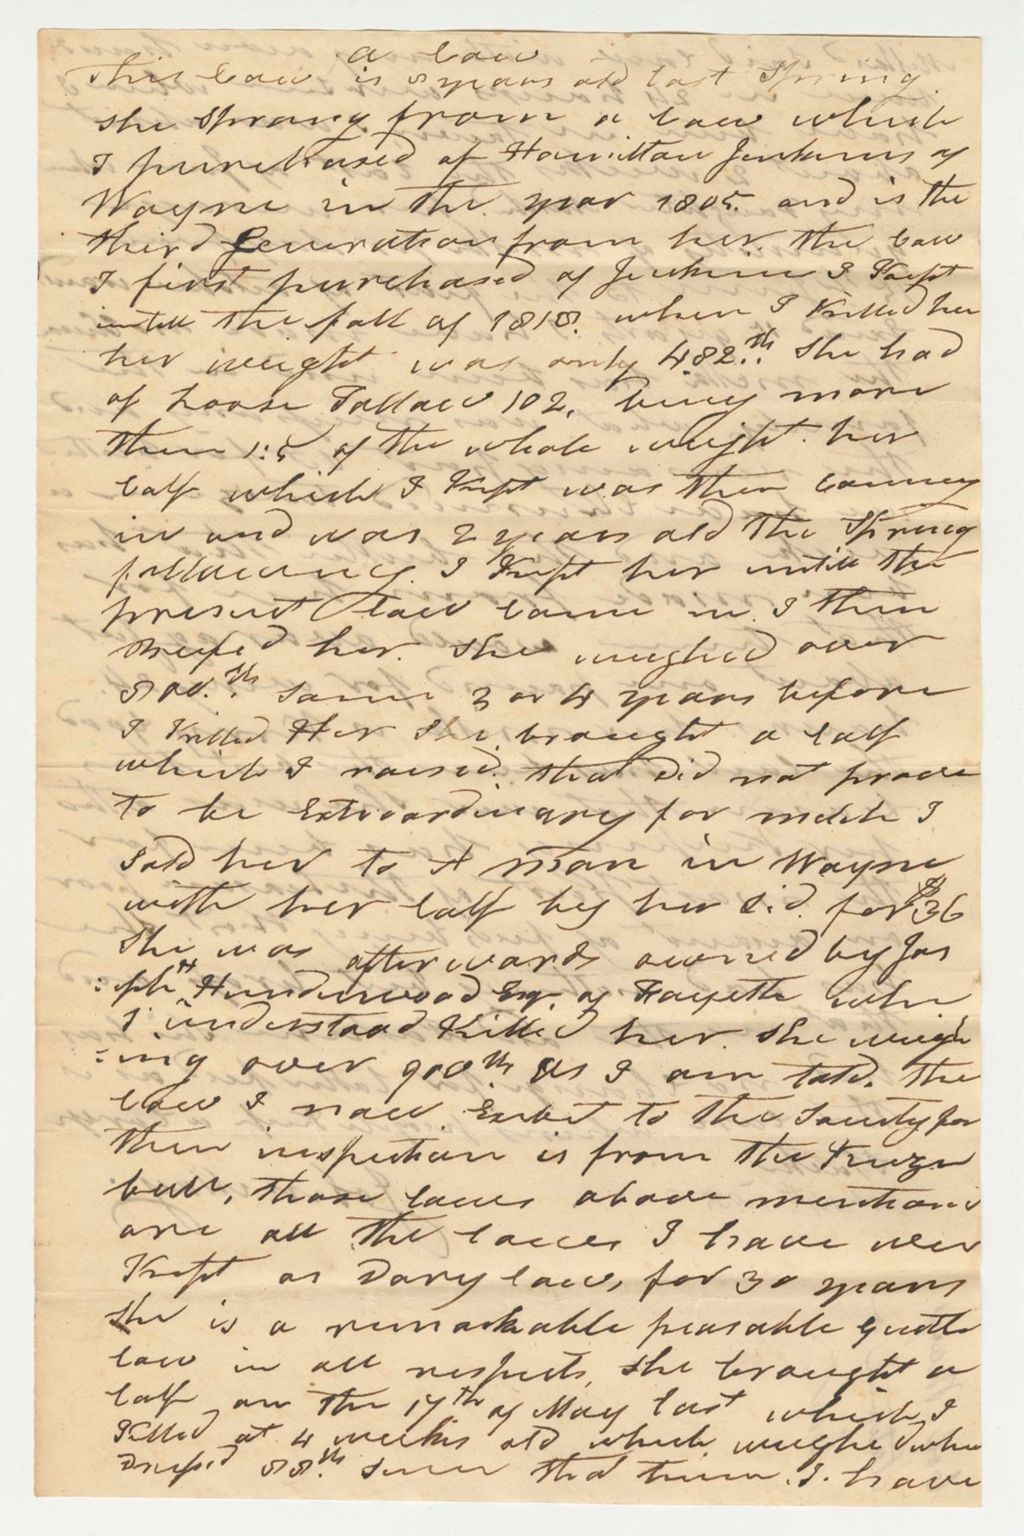 a Cow
This Cow is 8 years old last Spring
She Sprang from a Cow which
I purchased of Hamilton Jenkins of
Wayne in the year 1805. and is the
third Generation from her. the Cow
I first purchased of Jenkins I Kept
untill the fall of 1818. when I Killed her
her weight was only 482.th She had
of Loose Tallow 102, being more
then 1:5 of the whole weight. her
Calf which I Kept was then Coming
in and was 2 years old the Spring
following. I Kept her untill the
present Cow Came in I then
Beefed her. She weighed over
800.th Some 3 or 4 years before
I Killed Her She brought a Calf
which I raised. that did not prove
to be Extraordinary for milch I
Sold her to A man in Wayne
with her Calf by her Sid. for $36
She was afterwards owned by Jos
:eph H Underwood Esqr. of Fayette who
I understood Killed her. She weigh
:ing over 900th as I am told. the
Cow I now Exibet to the Society for
then inspection is from the
bull, those Cows above mentiond
are all the Cows I have ever
Kept as Dary Cows, for 30 years
She is a remarkable peasable Gentle
Cow in all respects, She brought a
Calf on the 17th of May last which I
Killed at 4 weeks old which weighed when
Dressed 88.th Since that time. I have